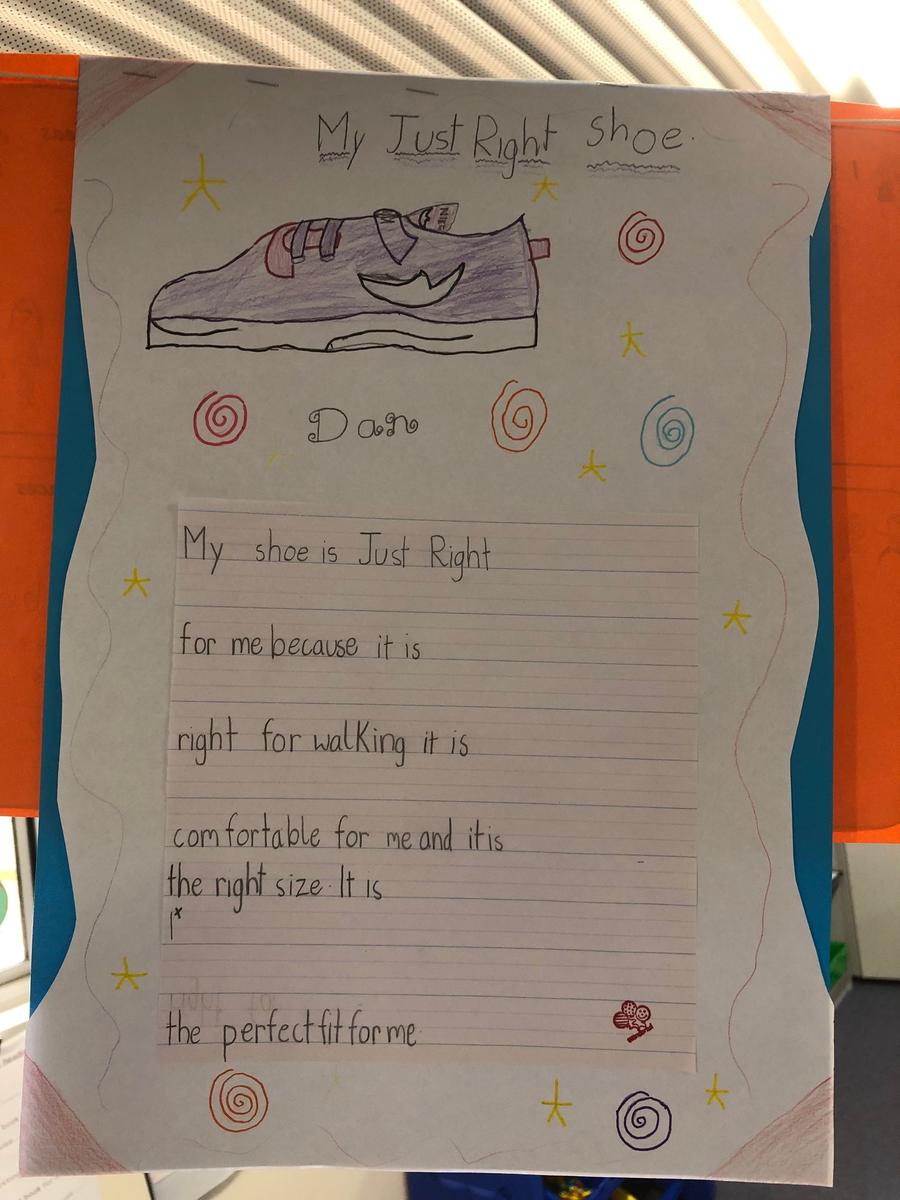 My Just Right shoe.
Dan
My shoe is Just Right
for me because it is
right for walking it is
comfortable for me and it is
the right size. It is
the perfect fit for me.